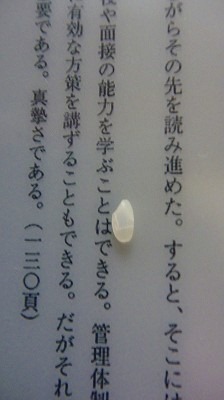 がらその先を読み進めた。すると、そこには
や面接の能力を学ぶことはできる。管理体制
有効な方策を講ずることもできる。だがそれ
要である。真摯さである。（一三〇頁）